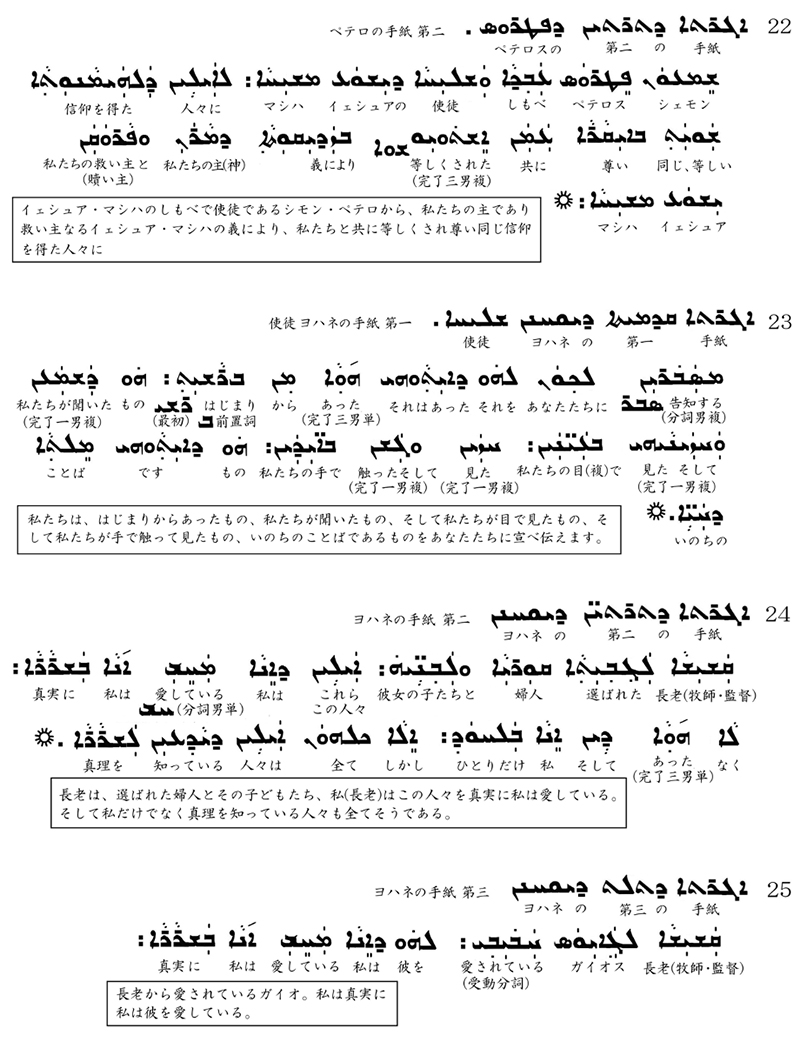 22 ܐܓܪܬܐ ܕܬܪܬܝܢ ܕܦܛܪܘܣ . ペテロの手紙 第二
ペテロスの 第二 の 手紙
ܫܡܥܘܢ ܦܛܪܘܣ ܥܒܕܐ ܘܫܠܝܚܐ ܕܝܫܘܥ ܡܫܝܚܐ: ܠܐܝܠܝܢ ܕܠܗܝܡܢܘܬܐ
信仰を得た 人々に マシハ イェシュアの 使徒 しもべ ペテロス シェモン
ܫܘܝܬ ܒܐܝܩܪܐ ܥܡܢ ܐܫܬܘܝܘ ܫܘܐ ܒܙܕܝܩܘܬܐ ܕܡܪܢ ܘܦܪܘܩܢ
私たちの救い主と 私たちの主(神) 義により 等しくされた 共に 尊い 同じ、等しい
(贖い主) (完了三男複)
ܝܫܘܥ ܡܫܝܚܐ:
マシハ イェシュア
イェシュア・マシハのしもべで使徒であるシモン・ペテロから、私たちの主であり
救い主なるイェシュア・マシハの義により、私たちと共に等しくされ尊い同じ信仰
を得た人々に
23 ܐܓܪܬܐ ܩܕܡܝܬܐ ܕܝܘܚܢܢ ܫܠܝܚܐ . 使徒 ヨハネの手紙 第一
使徒 ヨハネ の 第一 手紙
ܡܣܒܪܝܢ ܠܟܘܢ ܠܗܘ ܕܐܝܬܘܗܝ ܗܘܐ ܡܢ ܒܪܫܝܬ: ܗܘ ܕܫܡܥܢ
私たちが聞いた もの はじまり から あった それはあった それを あなたたちに 告知する
(完了一男複) (最初) ܪܫܝ ܒ 前置詞 (完了三男単) ܣܒܪ (分詞男複)
ܘܚܙܝܢܝܗܝ ܒܥܝܢܝܢ: ܚܙܝܢ ܘܓܫܢ ܒܐܝܕܝܢ: ܗܘ ܕܐܝܬܘܗܝ ܡܠܬܐ
ことば です もの 私たちの手で 触ったそして 見た 私たちの目(複)で 見た そして
(完了一男複) (完了一男複) (完了一男複)
ܕܚܝܐ.
いのちの
私たちは、はじまりからあったもの、私たちが聞いたもの、そして私たちが目で見たもの、そ
して私たちが手で触って見たもの、いのちのことばであるものをあなたたちに宣べ伝えます。
24 ܐܓܪܬܐ ܕܬܪܬܝܢ ܕܝܘܚܢܢ ヨハネの手紙 第二
ヨハネ の 第二 の 手紙
ܩܫܝܫܐ ܠܓܒܝܬܐ ܩܘܪܝܐ ܘܠܒܢܝܗ: ܐܝܠܝܢ ܕܐܢܐ ܡܚܒ ܐܢܐ ܒܫܪܪܐ:
真実に 私は 愛している 私は これら 彼女の子たちと 婦人 選ばれた 長老(牧師・監督)
ܚܒ (分詞男単) この人々
ܠܐ ܗܘܐ ܕܝܢ ܐܢܐ ܒܠܚܘܕ: ܐܠܐ ܟܠܗܘܢ ܐܝܠܝܢ ܕܝܕܥܝܢ ܠܫܪܪܐ.
真理を 知っている 人々は 全て しかし ひとりだけ 私 そして あった なく
(完了三男単)
長老は、選ばれた婦人とその子どもたち、私(長老)はこの人々を真実に私は愛している。
そして私だけでなく真理を知っている人々も全てそうである。
25 ܐܓܪܬܐ ܕܬܠܬ ܕܝܘܚܢܢ ヨハネの手紙 第三
ヨハネ の 第三 の 手紙
ܩܫܝܫܐ ܠܓܐܝܘܣ ܚܒܝܒܝ: ܠܗܘ ܕܐܢܐ ܡܚܒ ܐܢܐ ܒܫܪܪܐ:
真実に 私は 愛している 私は 彼を 愛されている ガイオス 長老(牧師・監督)
(受動分詞)
長老から愛されているガイオ。私は真実に
私は彼を愛している。